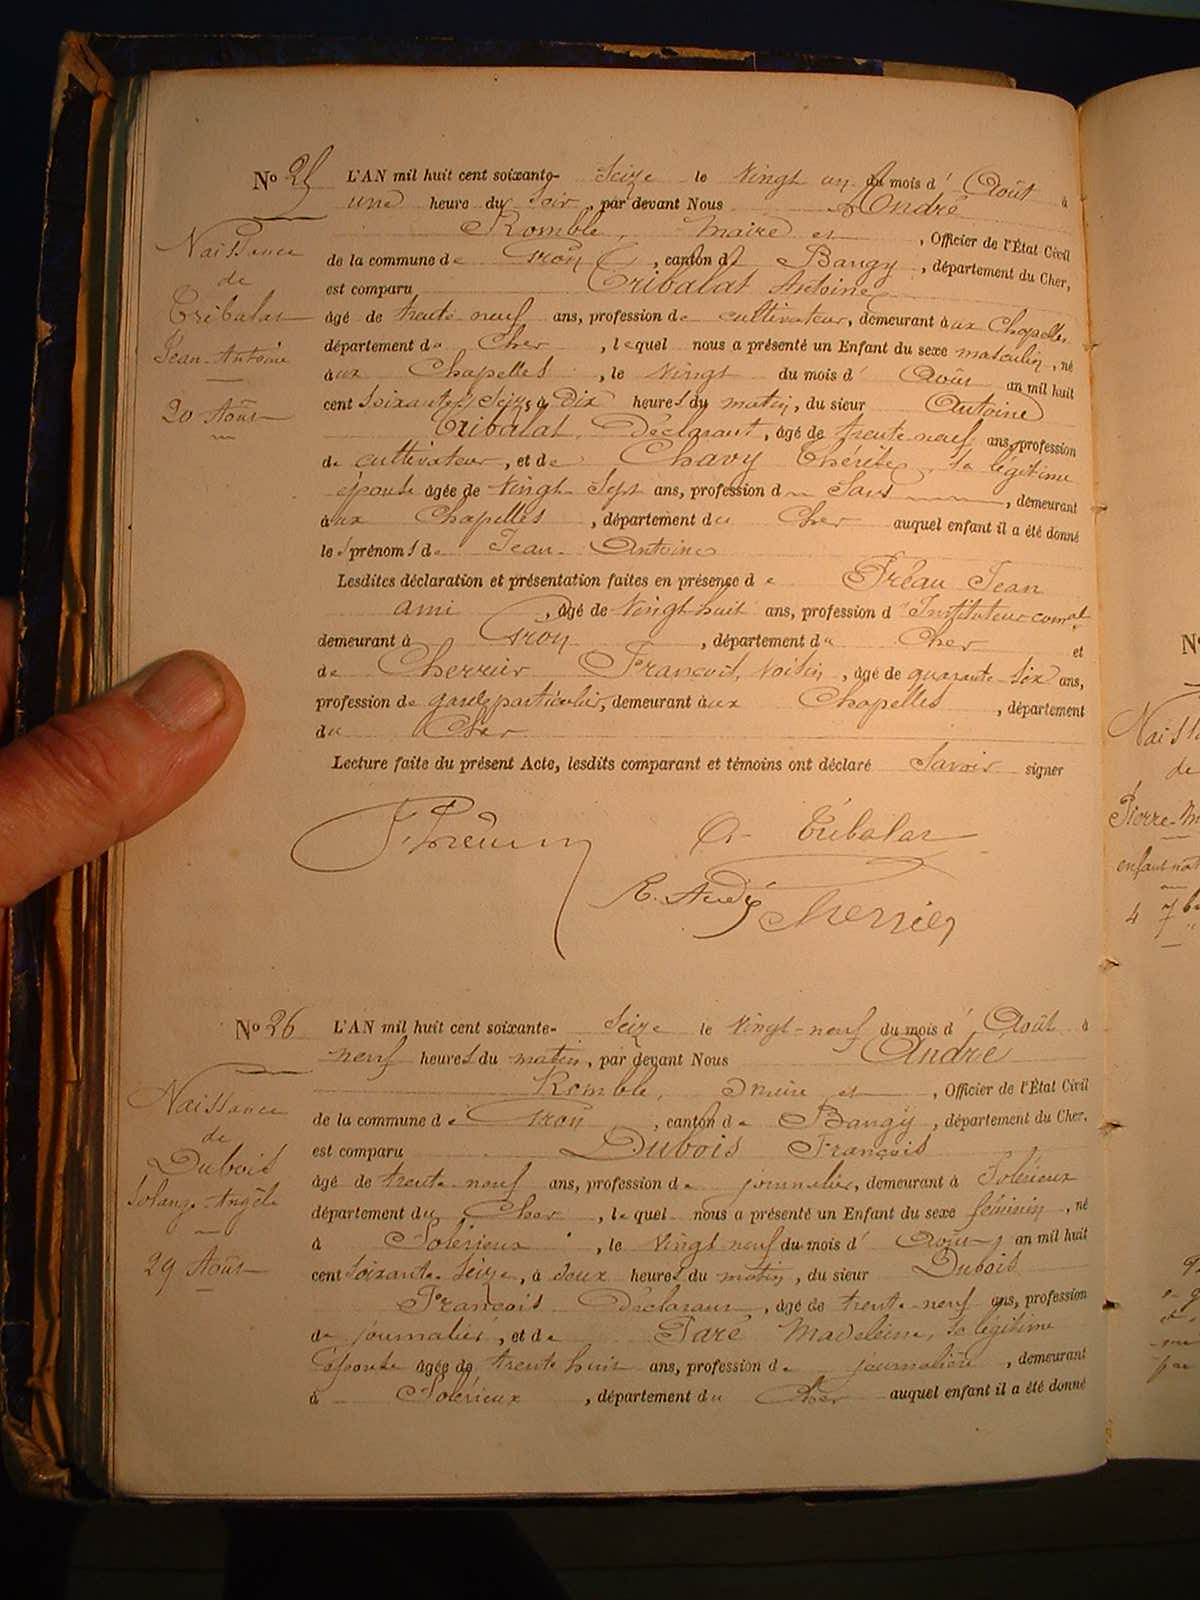 No 25 L'AN mil huit cent soixante- Seize le Vingt un du mois d' Août à
une heure du soir, par devant Nous André
Romble, Maire et , Officier de l'État Civil
Naissance
de la commune de Cron, canton de Baugy, département du Cher,
de
est comparu Tribalat Antoine
Tribalat
âgé de trente neuf ans, profession de cultivateur, demeurant aux Chapelles
Jean-Antoine
département du Cher, lequel nous a présenté un Enfant du sexe masculin, né
aux Chapelles, le Vingt du mois d' Août an mil huit
20 Août
cent soixante seize, à Dix heures du matin, du sieur Antoine
Tribalat Déclarant, âgé de trente neuf ans, profession
de cultivateur, et de Chavy Thérèse, sa légitime
épouse âgée de Vingt Sept ans, profession d Sans , demeurant
aux Chapelles, département du Cher auquel enfant il a été donné
les prénoms de Jean-Antoine
Lesdites déclaration et présentation faites en présence de Préau Jean
ami, âgé de Vingt huit ans, profession d'Instituteur comal
demeurant à Cron, département du Cher et
de Cherrier François, voisin, âgé de quarante-six ans,
profession de garde particulier, demeurant aux Chapelles, département
du Cher
Lecture faite du présent Acte, lesdits comparant et témoins ont déclaré Savoir signer
A Tribalat
R. André Cherrier
No 26 L'AN mil huit cent soixante- Seize le Vingt-neuf du mois d' Août à
neuf heures du matin, par devant Nous André
Romble, Maire et , Officier de l'État Civil
Naissance
de la commune de Cron, canton de Baugy, département du Cher,
de
est comparu Dubois François
Dubois
âgé de trente neuf ans, profession de journalier, demeurant à Solérieux
Solange-Angèle
département du Cher, lequel nous a présenté un Enfant du sexe féminin, né
à Solérieux, le Vingt neuf du mois d' Août, an mil huit
29 Août
cent soixante-seize, à deux heures du matin, du sieur Dubois
François Déclarant, âgé de trente-neuf ans, profession
de journalier, et de Paré Madeleine, sa légitime
épouse âgée de trente huit ans, profession de journalière, demeurant
à Solérieux, département du Cher auquel enfant il a été donné
N°
Naiss
de
Pierre-M
enfant nat
4 7b